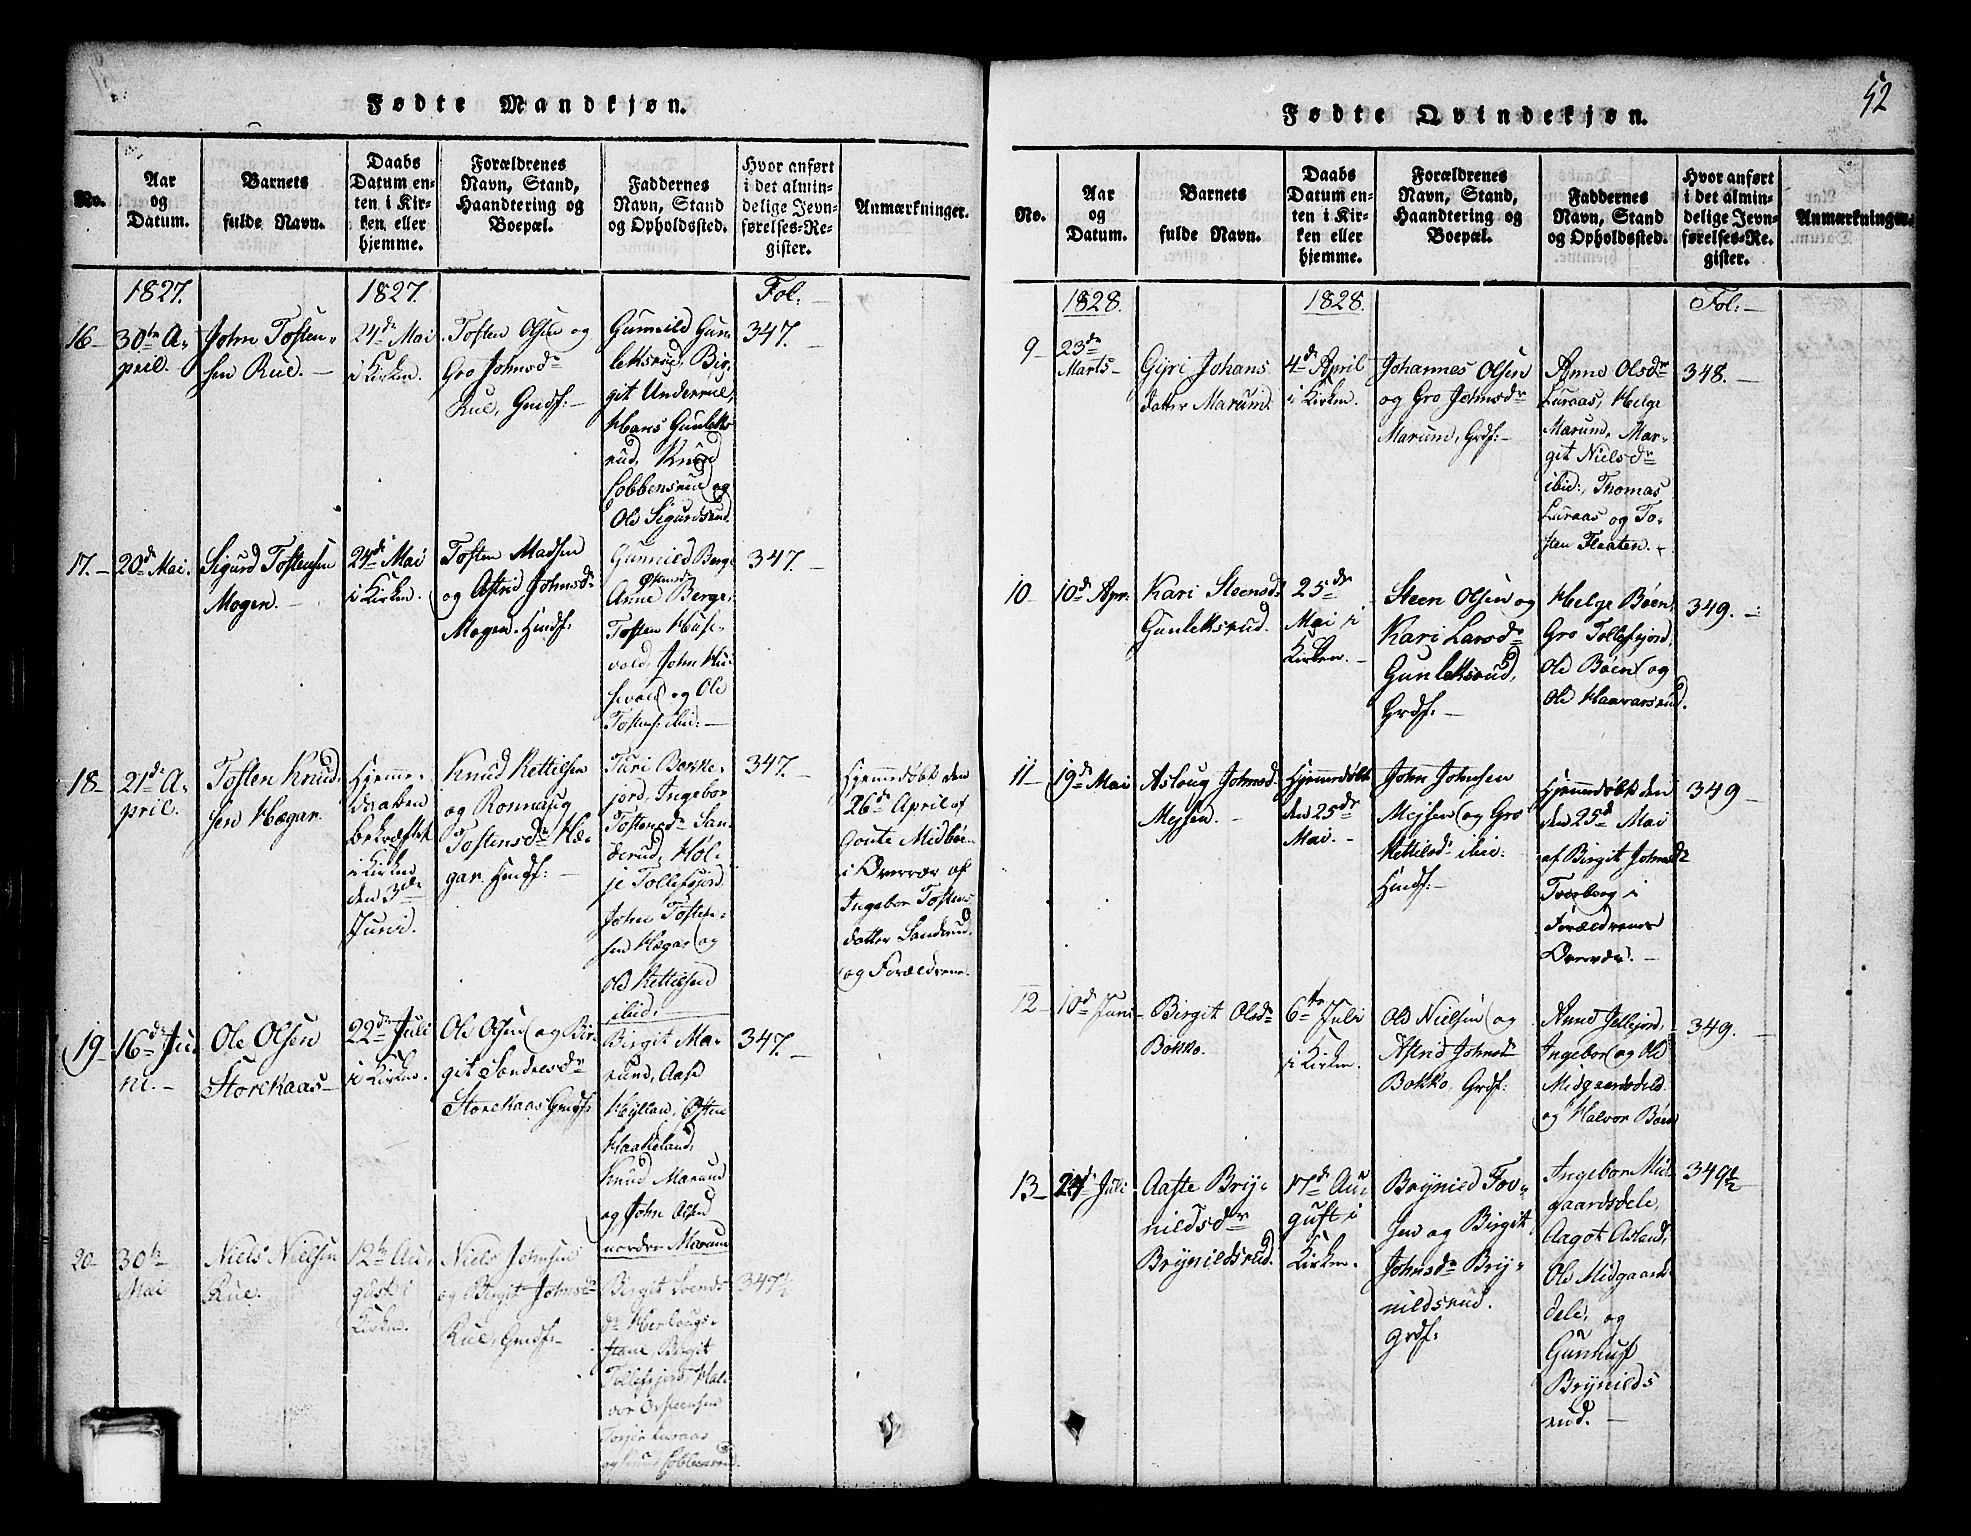 52
Fødte Mandkjøn.
No.
Aar
og
Datum.
Barnets
fulde Navn.
Daabs
Datum en-
ten i Kir-
ken eller
hjemme.
Forældrenes
Navn, Stand,
Haandtering og
Boepæl.
Faddernes
Navn, Stand
og Opholdssted.
Hvor anført
i det almin-
delige Jevn-
førelses-Re-
gister.
Anmærkninger.
1827.
1827.
Fol.
16
30te A-
pril.
John Tosten-
sen Rue.
24de Mai
i Kirken.
Tosten Olsen og
Gro Johnsdr
Rue, Gmdf:
Gunnild Gun-
leksrud, Bir-
git Underrue,
Hans Gunleks
rud, Knud
Lobbensrue og
Ole Sigurdsrud.
347.
17.
20de Mai.
Sigurd Tostensen
Mogen.
24de Mai
i Kirken.
Tosten Madsen
og Astrid Johnsdr
Mogen. Hmdf:
Gunnild Berge
Anne Berge,
Tosten Huse-
vold, John Hu-
sevold og Ole
Tostens: ibid:
347.
18
21de A-
pril.
Tosten Knud-
sen Hægar.
Hjemme-
daaben
bekræftet
i Kirken
den 3de
Juni.
Knud Kettilsen
og Ronnaug
Tostensdr Hæ-
gar. Hmdf:
Turi Bokke-
jord, Ingebor
Tostensdr San-
derud, Høl-
je Tollefsjord
John Tosten-
sen Hægar og
Ole Kettilsen
ibid.
347.
Hjemmedøbt den
26de April af
Goute Midbøen
i Overvær af
Ingebor Tostens
datter Sandrud
og Forældrene.
19
16de Ju-
ni.
Ole Olsen
Storekaas
22de Juli
i Kirken.
Ole Olsen og Bir-
git Sondresdr
Storekaas Gmdf:
Birgit Ma-
rund, Aase
Hylland, Osten
Haakeland,
Knud Marum
og John Olsen
nordre Marum
347.
20
30te
Mai
Niels Nielsen
Rue.
12te Au-
gust i
Kirken.
Niels Johnsen
og Birgit Johnsdr
Rue, Gmdf:
Birgit Svends
dr Herlougs-
Birgit
Tollefsjord Hal-
vor Østensen
Luraas
og Knud Lobbensrud.
347½
Fødte Qvindekjøn.
No.
Aar
og
Datum.
Barnets
fulde Navn.
Daabs
Datum en-
ten i Kir-
ken eller
hjemme.
Forældrenes
Navn, Stand,
Haandtering og
Boepæl.
Faddernes
Navn, Stand
og Opholdssted.
Hvor anført
i det almin-
delige Jevn-
førelses-Re-
gister.
Anmærkninger.
1828.
1828.
Fol:
9
23de
Marts
Gyri Johans
datter Marum.
4de April
i Kirken.
Johannes Olsen
og Gro Johnsdr
Marum, Grdf:
Anne Olsdr
Luraas, Helge
Marum, Mar-
git Nielsdr
ibid:, Thomas
Luraas og To-
sten Flaaten.
348.
10
10de Apr.
Kari Steensd:
Gunleksrud.
25de
Mai i
Kirken.
Steen Olsen og
Kari Larsdr
Gunleksrud,
Grdf:
Helge Bøen,
Gro Tollefsjord,
Ole Bøen og
Ole Haavarsrud.
349.
11
19de Mai
Aslaug Johnsd.
Mejsen.
Hjemmedøbt
den 25de
Mai.
John Johnsen
Mejsen og Gro
Kettilsdr ibid:
Hmdf:
Hjemmedøbt den
den 25de Mai
af Birgit Johnsdr
Tverberg i
Forældrenes
Overvær.
349
12
10de Juni
Birgit Olsdr
Bokko.
6te Juli
i Kirken.
Ole Nielsen og
Astrid Johnsdr
Bokko. Grdf:
Anne Jellejord,
Ingebor og Ole
Midgaardsdele
og Halvor Bøen
349.
13
24de Juli
Aaste Bry-
nildsdr
Brynildsrud.
17de Au-
gust i
Kirken.
Brynild Tov-
sen og Birgit
Johnsdr Bry-
nildsrud.
Grdf:
Ingebor Mid-
gaardsdele,
Aagot Asland,
Ole Midgaards-
dele, og
Gunnuf
Brynilds
rud.
349½